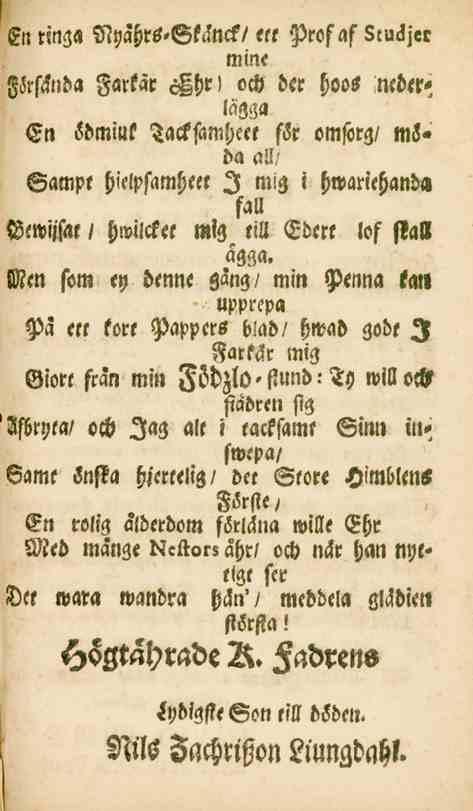 En ringa Nyåhrs-Skänck/ ett Prof af Studjer
mine
Försända Farkär Ehr) och der hoos neder-
lägga
En ödmiuk Tacksamheet för omsorg/ mö-
da all/
Sampt hielpsamheet I mig i hwariehanda
fall
Bewijsat / hwilcket mig till Edert lof skall
ägga.
Men som ey denne gång/ min Penna kan
upprepa
På ett kort Pappers blad/ hwad godt I
Farkär mig
Giort från min Födzlo-stund: Ty will och
städren sig
Afbryta/ och Jag alt i tacksamt Sinn in-
swepa/
Samt önska hjertelig/ det Store Himblens
Förste/
En rolig ålderdom förläna wille Ehr
Med månge Nestors åhr/ och når han nyt-
tigt ser
Det wara wandra hän'/ meddela glädien
största!
Högtährade K. Fadrens
Lydigste Son till döden.
Nils Zachrißon Liungdahl.